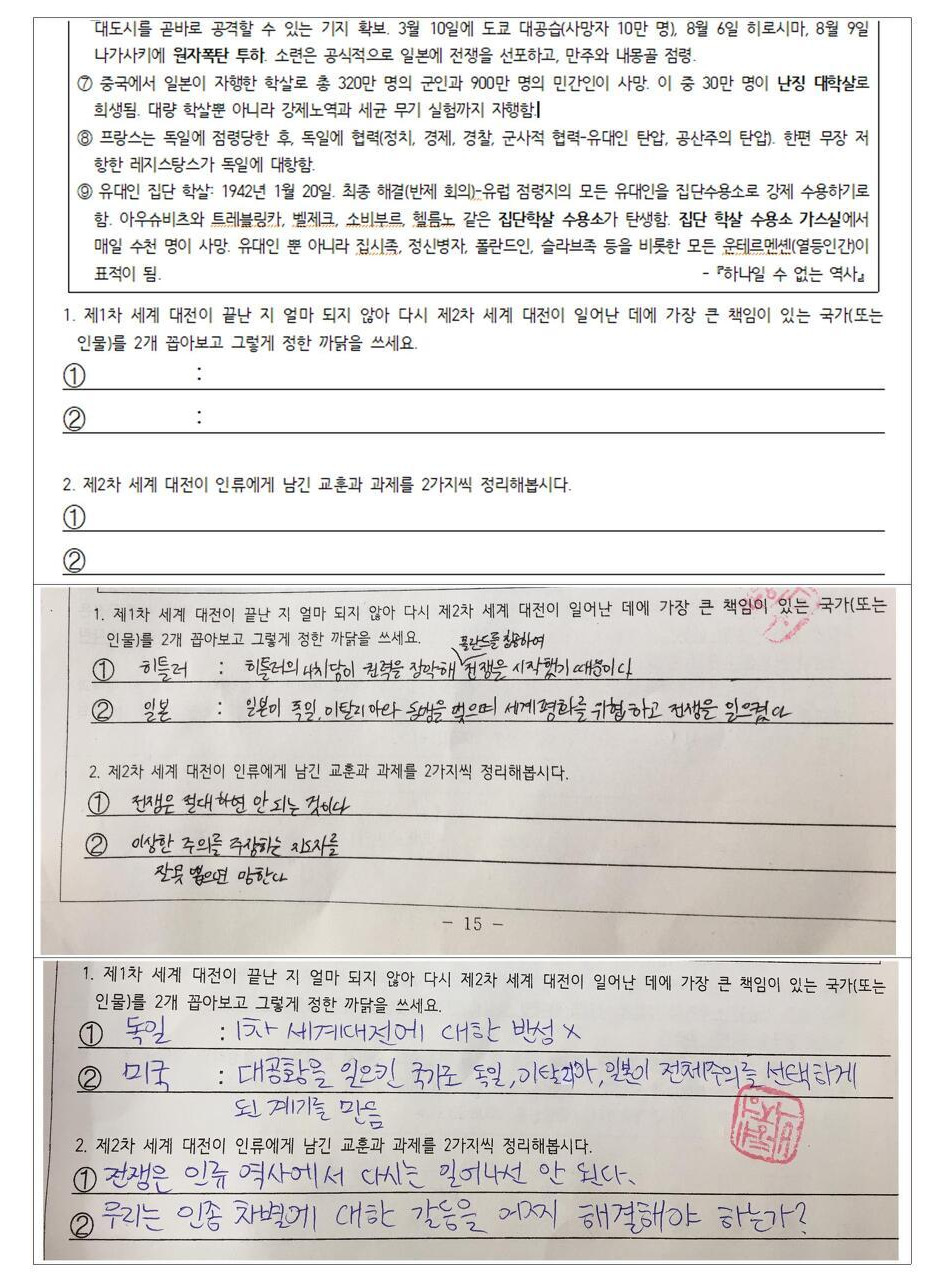 대도시를 곧바로 공격할 수 있는 기지 확보. 3월 10일에 도쿄 대공습(사망자 10만 명), 8월 6일 히로시마, 8월 9일
나가사키에 원자폭탄 투하. 소련은 공식적으로 일본에 전쟁을 선포하고, 만주와 내몽골 점령.
⑦ 중국에서 일본이 자행한 학살로 총 320만 명의 군인과 900만 명의 민간인이 사망. 이 중 30만 명이 난징 대학살로
희생됨. 대량 학살뿐 아니라 강제노역과 세균 무기 실험까지 자행함.
⑧ 프랑스는 독일에 점령당한 후, 독일에 협력(정치, 경제, 경찰, 군사적 협력-유대인 탄압, 공산주의 탄압). 한편 무장 저
항한 레지스탕스가 독일에 대항함.
⑨ 유대인 집단 학살: 1942년 1월 20일. 최종 해결(반제 회의)-유럽 점령지의 모든 유대인을 집단수용소로 강제 수용하기로
함. 아우슈비츠와 트레블링카, 벨제크, 소비부르 헬름노 같은 집단학살 수용소가 탄생함. 집단 학살 수용소 가스실에서
매일 수천 명이 사망. 유대인 뿐 아니라 집시족, 정신병자, 폴란드인, 슬라브족 등을 비롯한 모든 운테르멘셴(열등인간)이
표적이 됨. - 『하나일 수 없는 역사』
1. 제1차 세계 대전이 끝난 지 얼마 되지 않아 다시 제2차 세계 대전이 일어난 데에 가장 큰 책임이 있는 국가(또는
인물)를 2개 꼽아보고 그렇게 정한 까닭을 쓰세요.
① :
② :
2. 제2차 세계 대전이 인류에게 남긴 교훈과 과제를 2가지씩 정리해봅시다.
①
②
1. 제1차 세계 대전이 끝난 지 얼마 되지 않아 다시 제2차 세계 대전이 일어난 데에 가장 큰 책임이 있는 국가(또는
인물)를 2개 꼽아보고 그렇게 정한 까닭을 쓰세요.
폴란드를 침공하여
① 히틀러 : 히틀러의 나치당이 권력을 장악해 전쟁을 시작했기 때문이다
② 일본 : 일본이 독일, 이탈리아와 동맹을 맺으며 세계평화를 위협하고 전쟁을 일으켰다
2. 제2차 세계 대전이 인류에게 남긴 교훈과 과제를 2가지씩 정리해봅시다.
① 전쟁은 절대하면 안 되는 것이다
② 이상한 주의를 주장하는 지도자를
잘못 뽑으면 망한다
- 15 -
1. 제1차 세계 대전이 끝난 지 얼마 되지 않아 다시 제2차 세계 대전이 일어난 데에 가장 큰 책임이 있는 국가(또는
인물)를 2개 꼽아보고 그렇게 정한 까닭을 쓰세요.
① 독일 : 1차 세계대전에 대한 반성 x
② 미국 : 대공황을 일으킨 국가로 독일, 이탈리아, 일본이 전체주의를 선택하게
된 계기를 만듦
2. 제2차 세계 대전이 인류에게 남긴 교훈과 과제를 2가지씩 정리해봅시다.
① 전쟁은 인류 역사에서 다시는 일어나선 안 된다.
② 우리는 인종 차별에 대한 갈등을 어찌 해결해야 하는가?